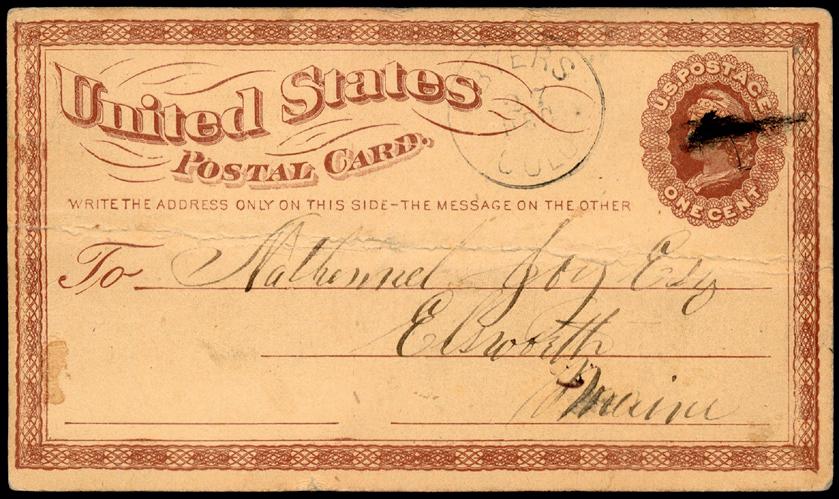 United States
POSTAL CARD.
BYERS
COLO
U.S. POSTAGE
ONE CENT
WRITE THE ADDRESS ONLY ON THIS SIDE-THE MESSAGE ON THE OTHER
To Nathennel Joy Esq
Elsworth
Maine